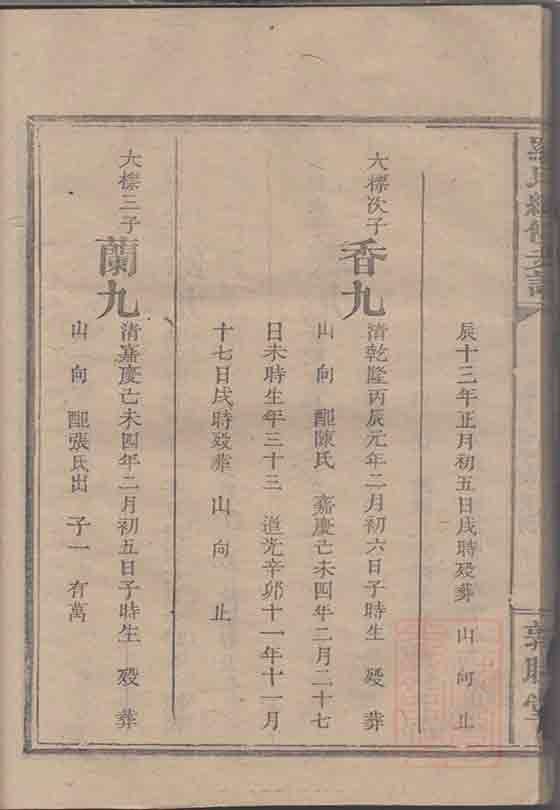 辰十三年正月初五日戌時歿葬 山向止
六標次子
香九
清乾隆丙辰元年二月初六日子時生 歿 葬
山 向 配陳氏 嘉慶己未四年二月二十七
日未時生年三十三 道光辛卯十一年十一月
十七日戌時歿葬 山 向 止
六標三子
蘭九
清嘉慶己未四年二月初五日子時生 歿 葬
山 向 配張氏出 子一 有萬